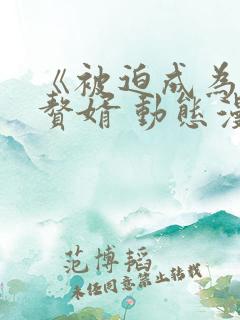 《被迫成為
贅婿 動態漫
范博韜
未经同意禁止转载